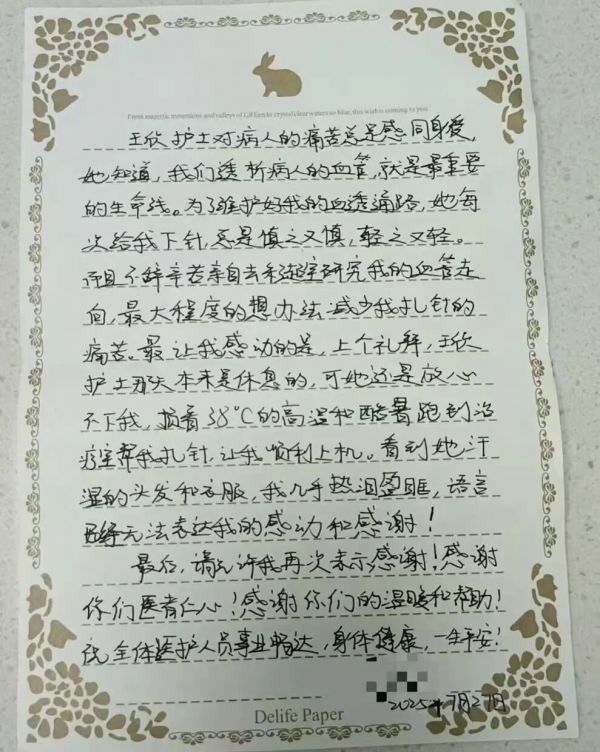 From majestic mountains and valleys of GREen to crystal clear waters so blue, this wish is coming to you
王欣护士对病人的痛苦总是感同身受，
她知道，我们透析病人的血管，就是最重要
的生命线。为了维护好我的血透通路，她每
次给我下针，总是慎之又慎，轻之又轻。
而且不辞辛苦亲自去彩超室研究我的血管走
向，最大程度的想办法减少我扎针的
痛苦。最让我感动的是，上个礼拜，王欣
护士那天本来是休息的，可她还是放心
不下我，顶着38℃的高温和酷暑跑到治
疗室帮我扎针，让我顺利上机。看到她汗
湿的头发和衣服，我几乎热泪盈眶，语言
已经无法表达我的感动和感谢！
最后，请允许我再次表示感谢！感谢
你们医者仁心！感谢你们的温暖和帮助！
祝全体医护人员事业畅达，身体健康，一生平安！
2025年7月27日
Delife Paper